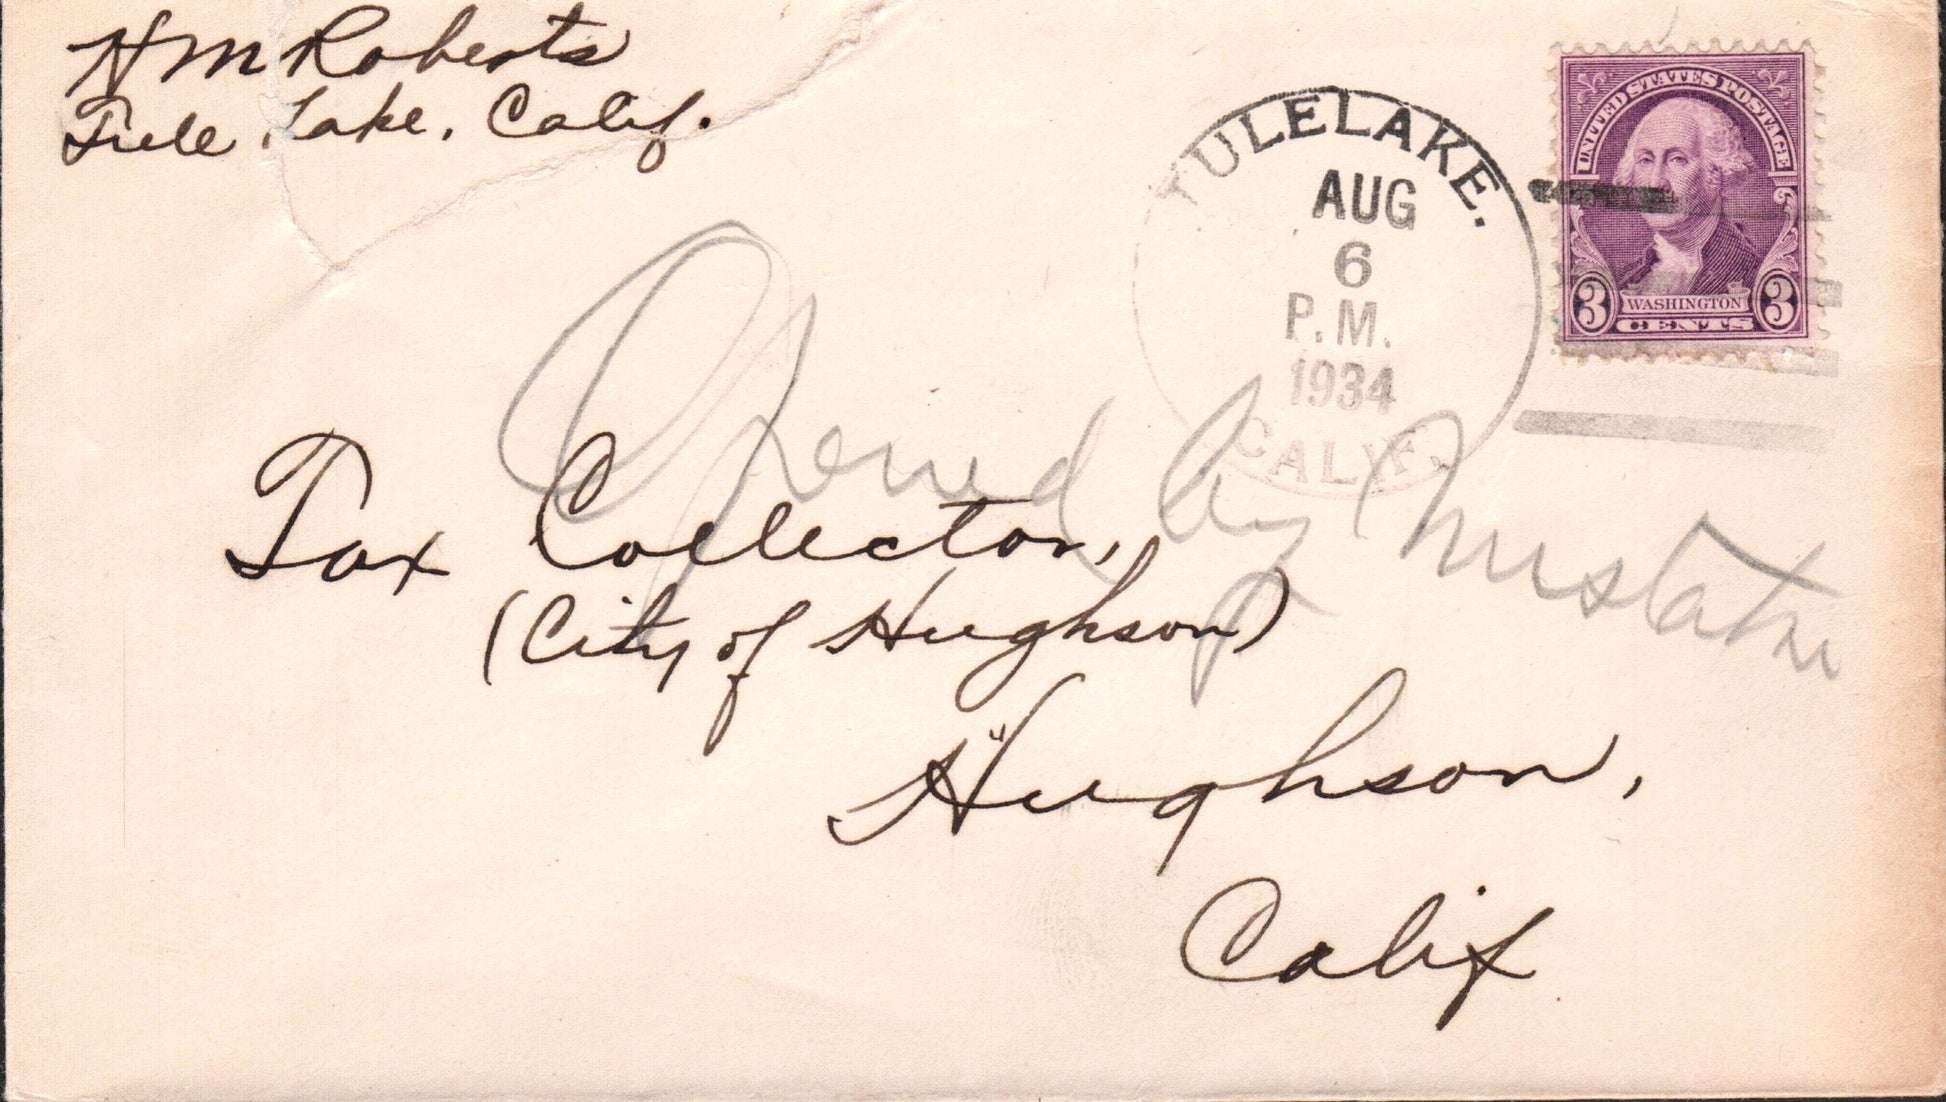 H M Roberts
Tule Lake, Calif.
TULELAKE.
AUG
6
P.M.
1934
CALIF.
UNITED STATES POSTAGE
3 WASHINGTON 3
CENTS
Opened by Mistake
Tax Collector,
(City of Hughson)
Hughson,
Calif